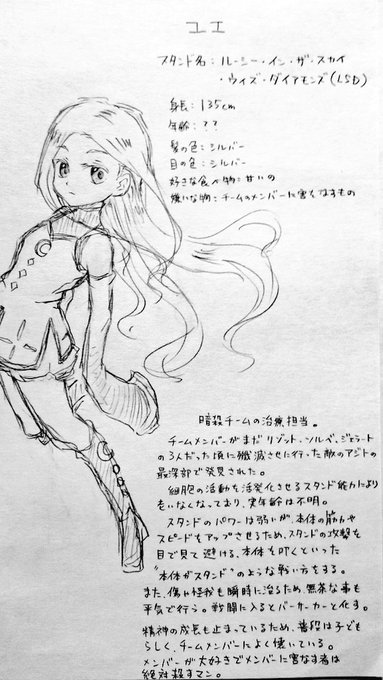 ユエ
スタンド名：ルーシー・イン・ザ・スカイ
・ウィズ・ダイアモンズ(LSD)
身長：135cm
年齢：??
髪の色：シルバー
目の色：シルバー
好きな食べ物：甘いの
嫌いな物：チームのメンバーに害をなすもの
暗殺チームの治療担当。
チームメンバーがまだリゾット・ソルベ・ジェラート
の3人だった頃に殲滅させに行った敵のアジトの
最深部で発見された。
細胞の活動を活発化させるスタンド能力により
老いなくなっており、実年齢は不明。
スタンドのパワーは弱いが、本体の筋力や
スピードをアップさせるため、スタンドの攻撃を
目で見て避ける、本体を叩くといった
"本体がスタンド"のような戦い方をする。
また、傷や怪我も瞬時に治るため、無茶な事も
平気で行う。戦闘に入るとバーサーカーと化す。
精神の成長も止まっているため、普段は子ども
らしく、チームメンバーによく懐いている。
メンバーが大好きでメンバーに害なす者は
絶対殺すマン。